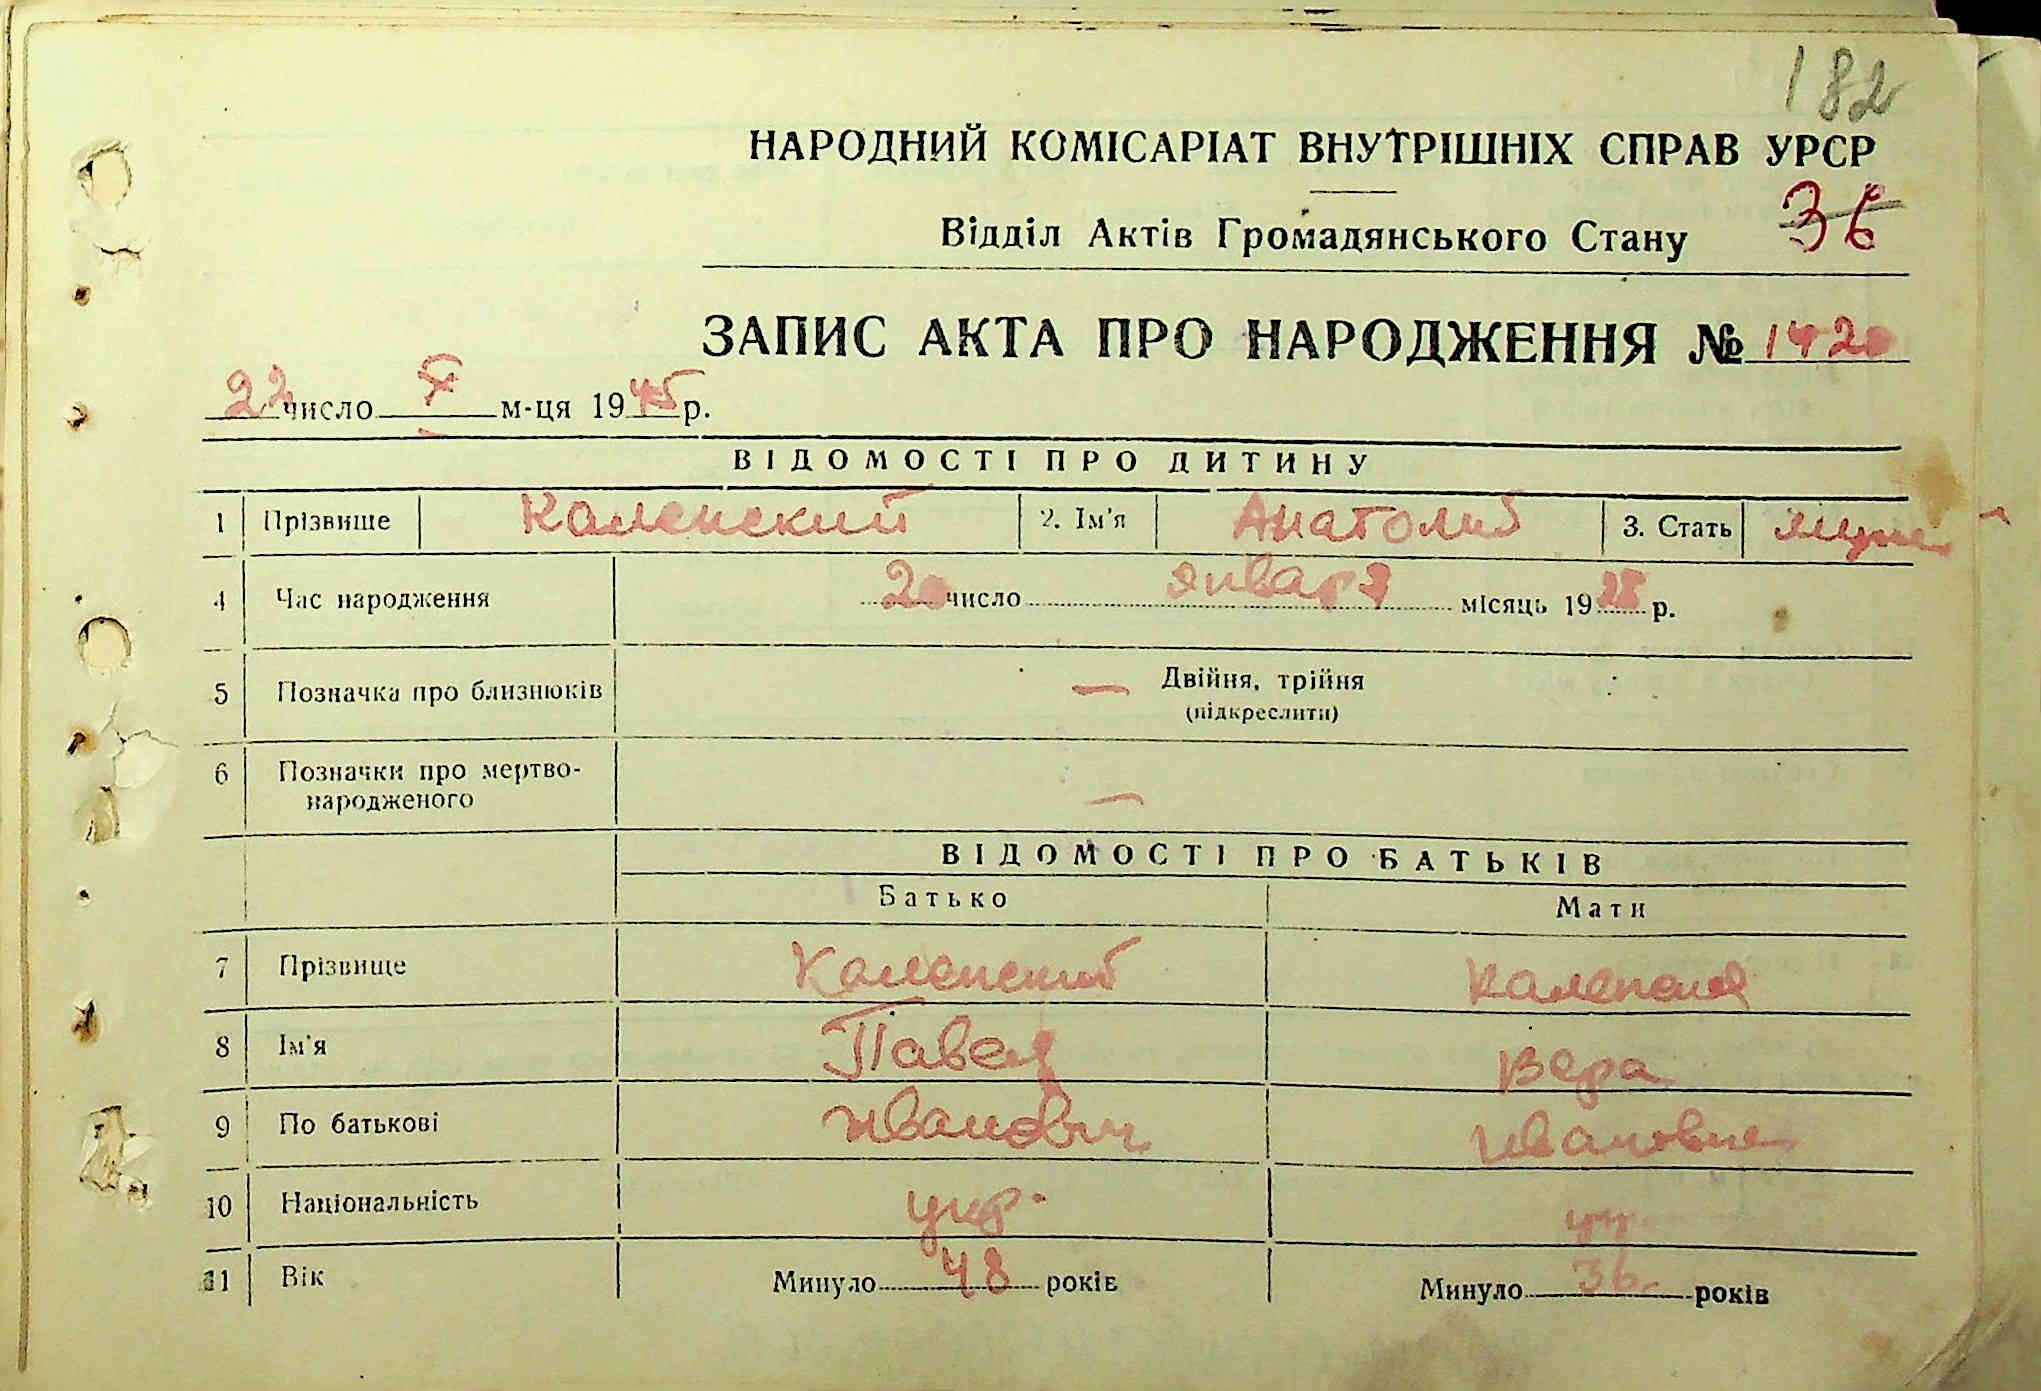 182
НАРОДНИЙ КОМІСАРІАТ ВНУТРІШНІХ СПРАВ УРСР
Відділ Актів Громадянського Стану 36
ЗАПИС АКТА ПРО НАРОДЖЕННЯ № 1420
22 число X м-ця 1945 р.
ВІДОМОСТІ ПРО ДИТИНУ
1 Прізвище Каленский 2. Ім'я Анатолий 3. Стать
4 Час народження 20 число января місяць 1928 р.
5 Позначка про близнюків — Двійня, трійня
(підкреслити)
6 Позначки про мертво-
народженого —
ВІДОМОСТІ ПРО БАТЬКІВ
Батько Мати
7 Прізвище Каленский
8 Ім'я Павел Вера
9 По батькові Иванович Ивановна
10 Національність укр. ук
11 Вік Минуло 48 років Минуло 36 років